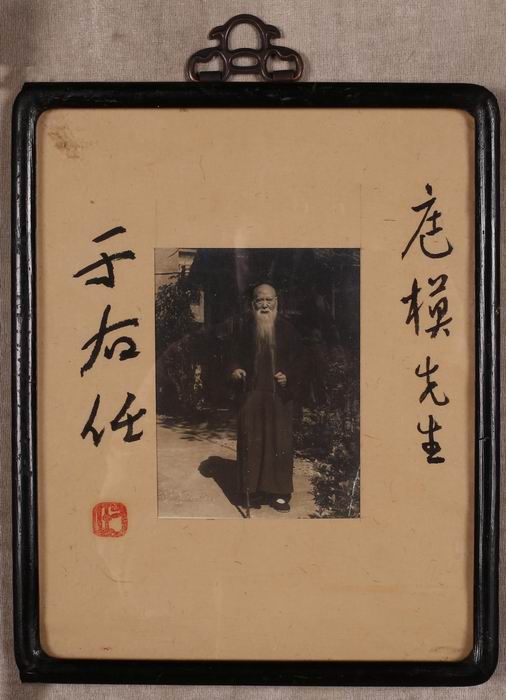 庭模先生
于右任